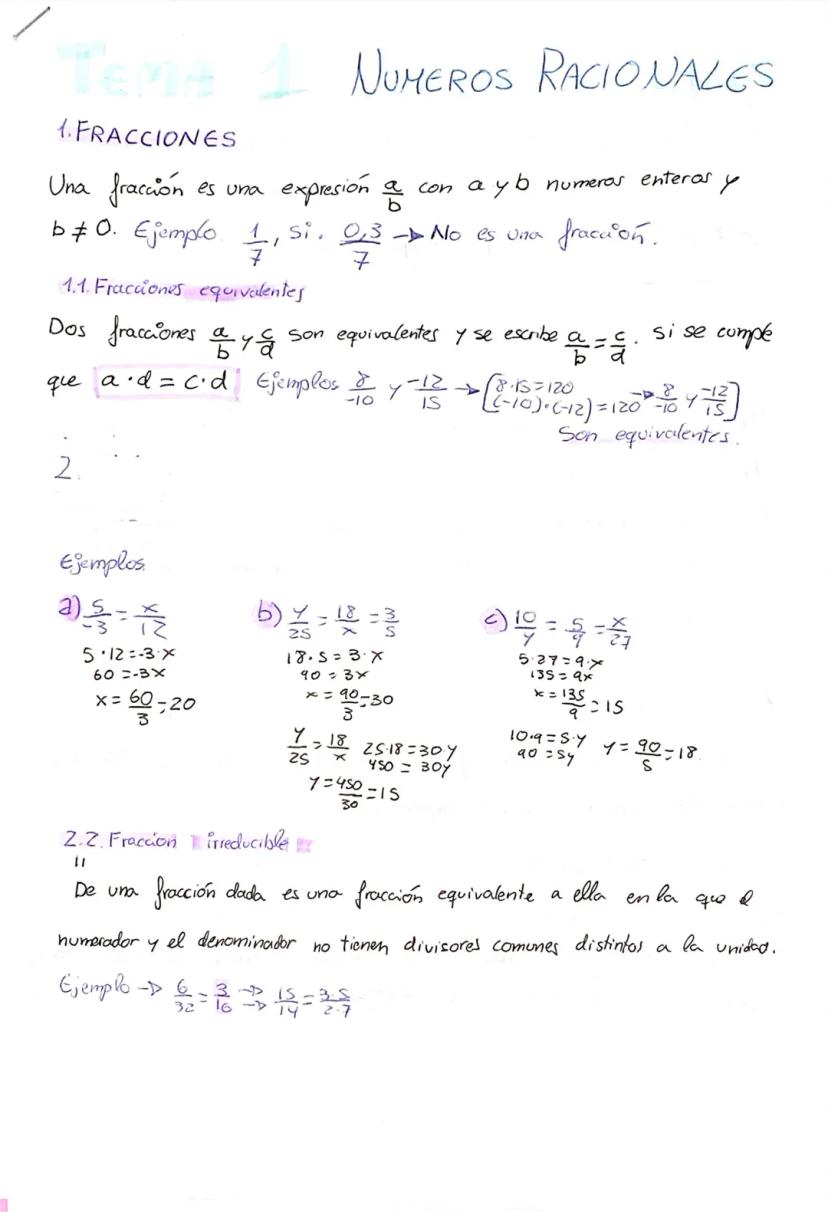 Tema 1 NUMEROS RACIONALES
1. FRACCIONES
Una fracción es una expresión a/b con a y b numeros enteros y
b ≠ 0. Ejemplo 1/7, Si. 0,3/7 → No es una fracción.
1.1. Fracciones equivalentes
Dos fracciones a/b y c/d son equivalentes y se escribe a/b = c/d. Si se cumple
que a·d = c·d Ejemplos 8/-10 y -12/15 → [8·15=120
(-10)·(-12)=120 → 8/-10 y -12/15]
Son equivalentes.
2.
Ejemplos.
a) 5/-3 = x/12
5·12=-3·x
60=-3x
x=60/3=20
b) y/25 = 18/x = 3/5
18·5=3·x
90=3x
x=90/3=30
y/25=18/x 25·18=30·y
450=30y
y=450/30=15
c) 10/y = 5/9 = x/27
5·27=9·x
135=9x
x=135/9=15
10·9=5·y
90=5y y=90/5=18
2.2. Fraccion irreducible
"
De una fracción dada es una fracción equivalente a ella en la que el
numerador y el denominador no tienen divisores comunes distintos a la unidad.
Ejemplo → 6/32 = 3/16 →→ 15/14 = 3·5/2·7